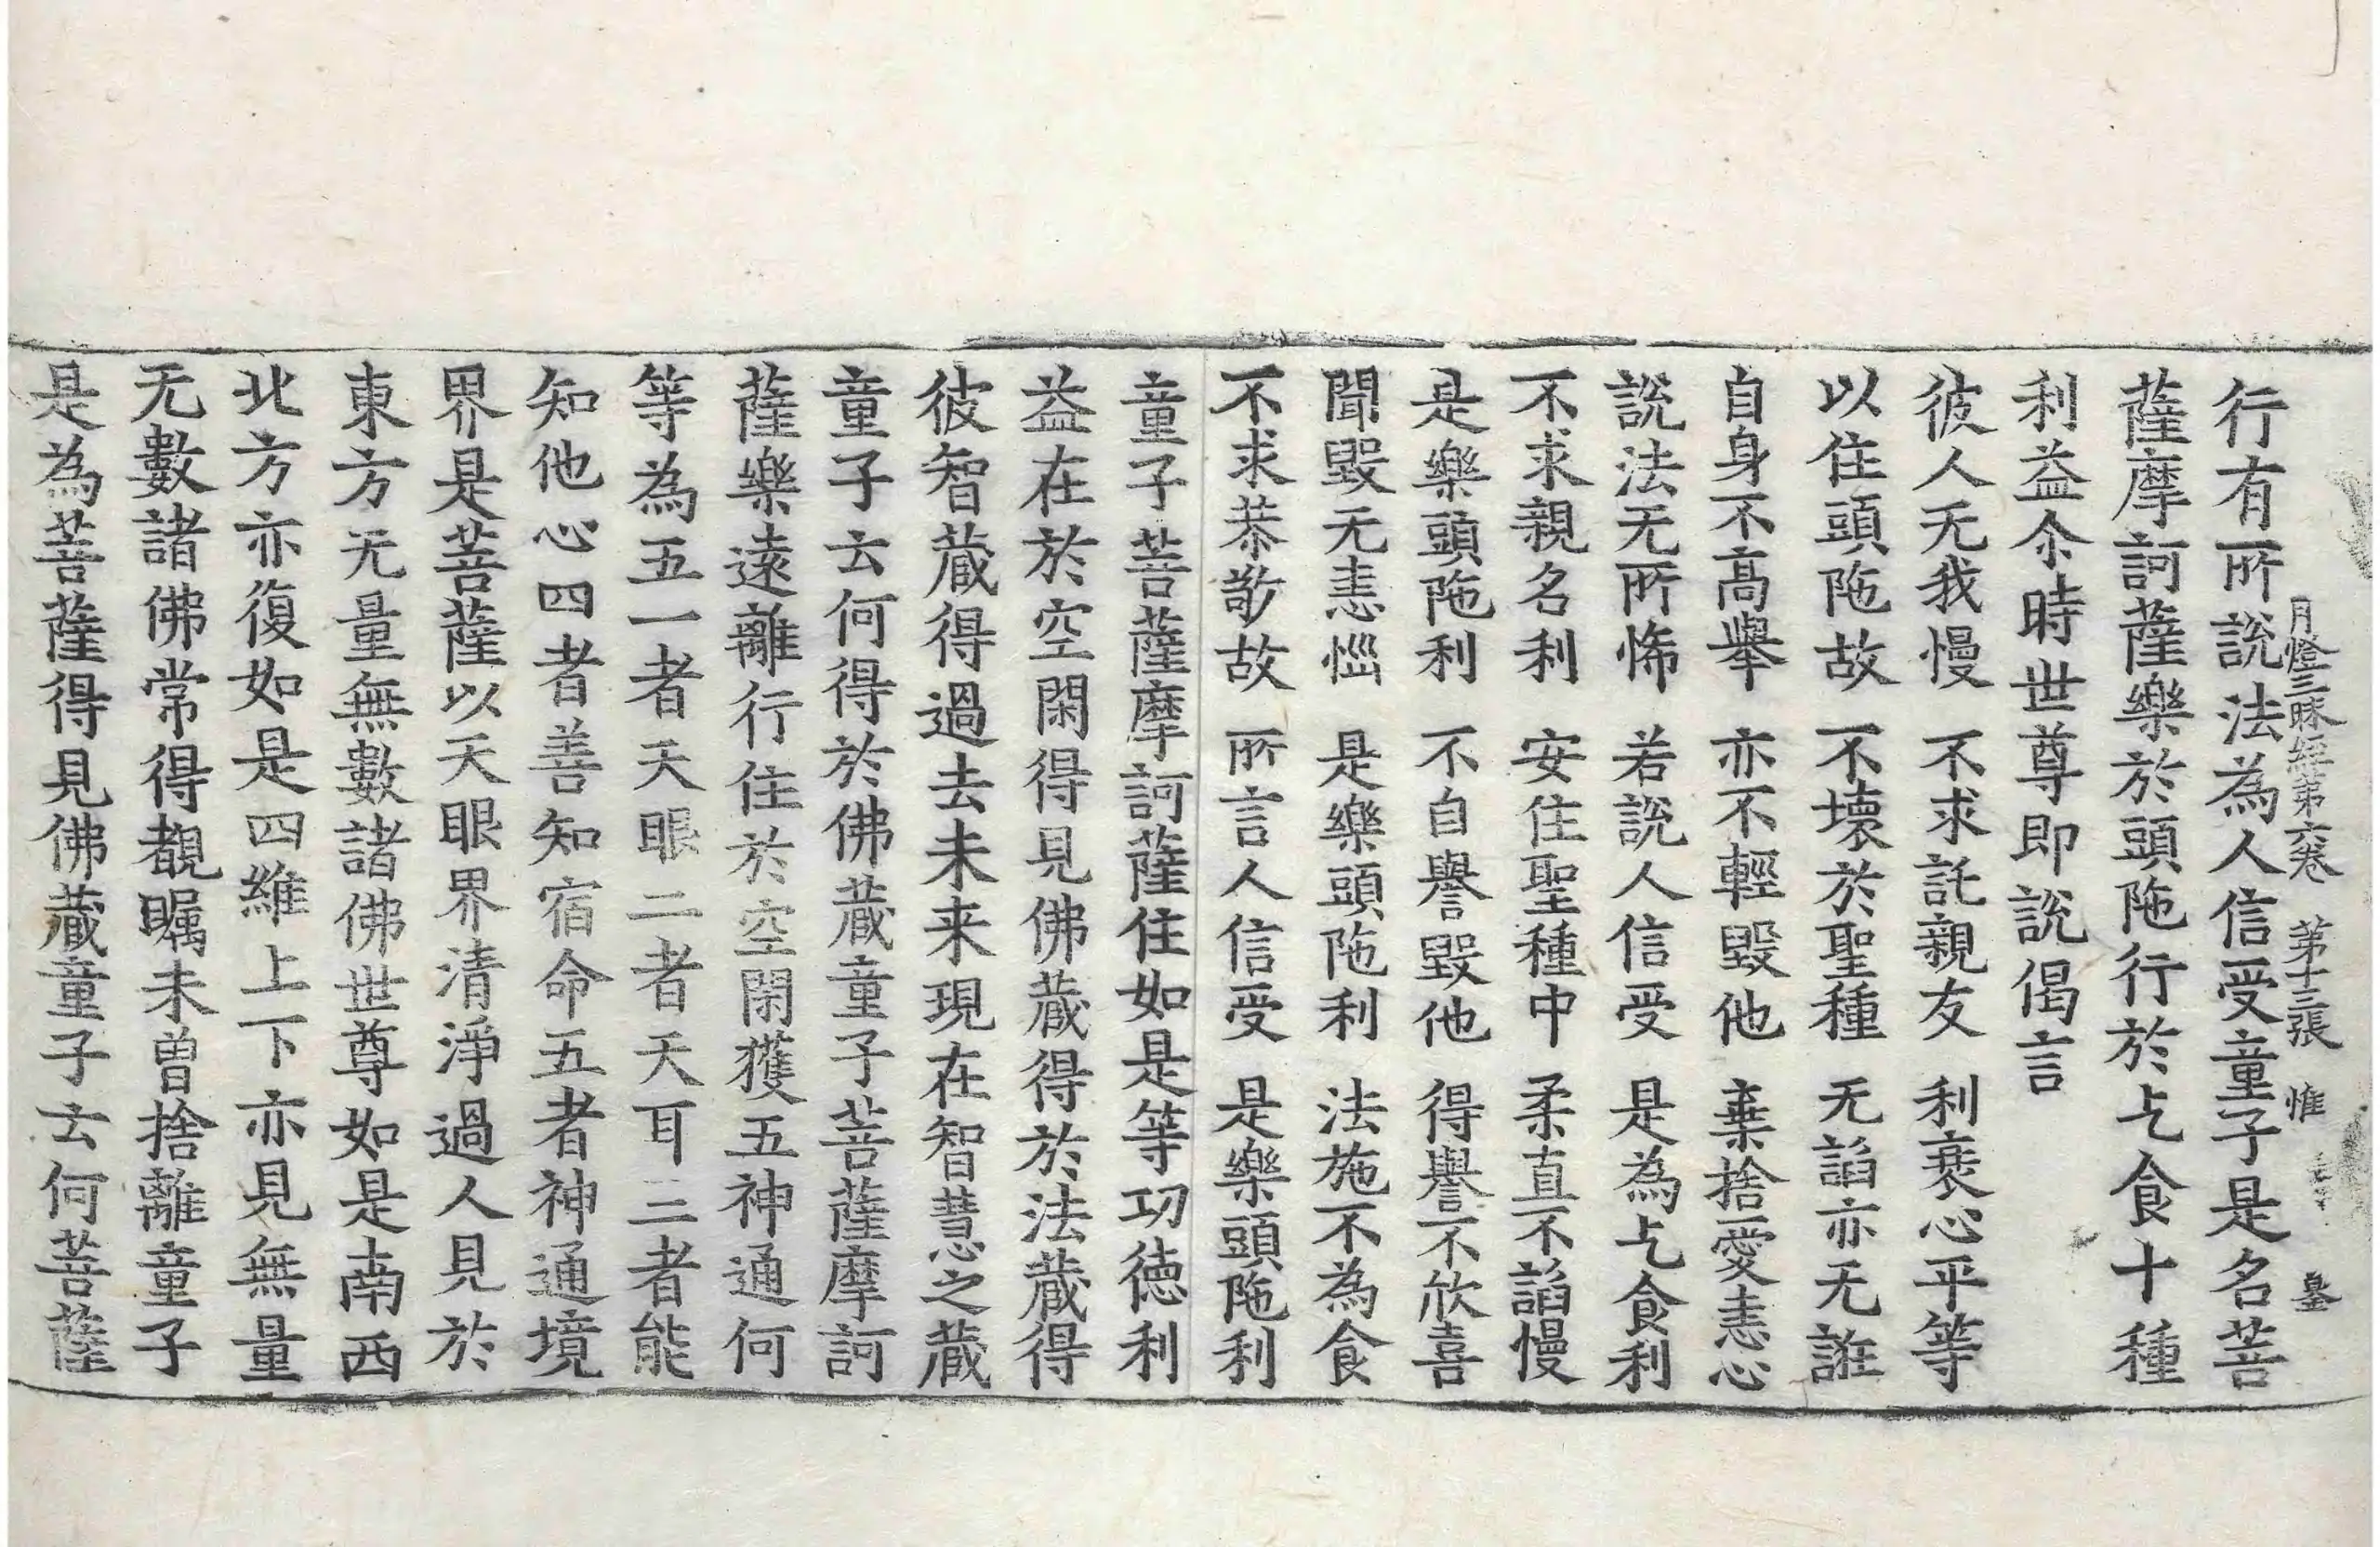 月燈三昧經第六卷　第十三張　惟
行有所說法為人信受童子是名菩
薩摩訶薩樂於頭陁行於乞食十種
利益尒時世尊即說偈言
彼人无我慢　不求託親友　利衰心平等
以住頭陁故　不壞於聖種　无諂亦无誑
自身不高舉　亦不輕毀他　棄捨愛恚心
說法无所怖　若說人信受　是為乞食利
不求親名利　安住聖種中　柔直不諂慢
是樂頭陁利　不自譽毀他　得譽不欣喜
聞毀无恚惱　是樂頭陁利　法施不為食
不求恭敬故　所言人信受　是樂頭陁利
童子菩薩摩訶薩住如是等功德利
益在於空閑得見佛藏得於法藏得
彼智藏得過去未来現在智慧之藏
童子云何得於佛藏童子菩薩摩訶
薩樂遠離行住於空閑獲五神通何
等為五一者天眼二者天耳三者能
知他心四者善知宿命五者神通境
界是菩薩以天眼界清淨過人見於
東方无量無數諸佛世尊如是南西
北方亦復如是四維上下亦見無量
无數諸佛常得覩矚未曾捨離童子
是為菩薩得見佛藏童子云何菩薩